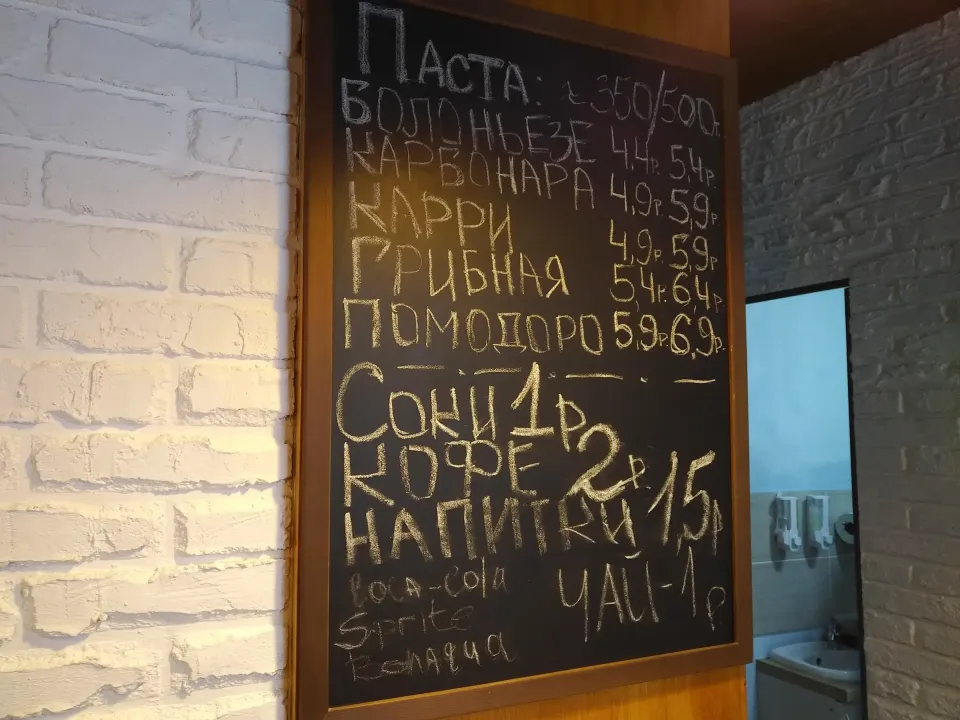 ПАСТА: 350/500г.
БОЛОНЬЕЗЕ 4.4р. 5,4р.
КАРБОНАРА 4,9р. 5,9р.
КАРРИ 4,9р. 5,9р.
ГРИБНАЯ 5,4р. 6,4р.
ПОМОДОРО 5,9р. 6,9р.
СОКИ 1р
КОФЕ 2р.
НАПИТКИ 1,5р
Coca-Cola ЧАЙ-1р
Sprite
Bonaqua